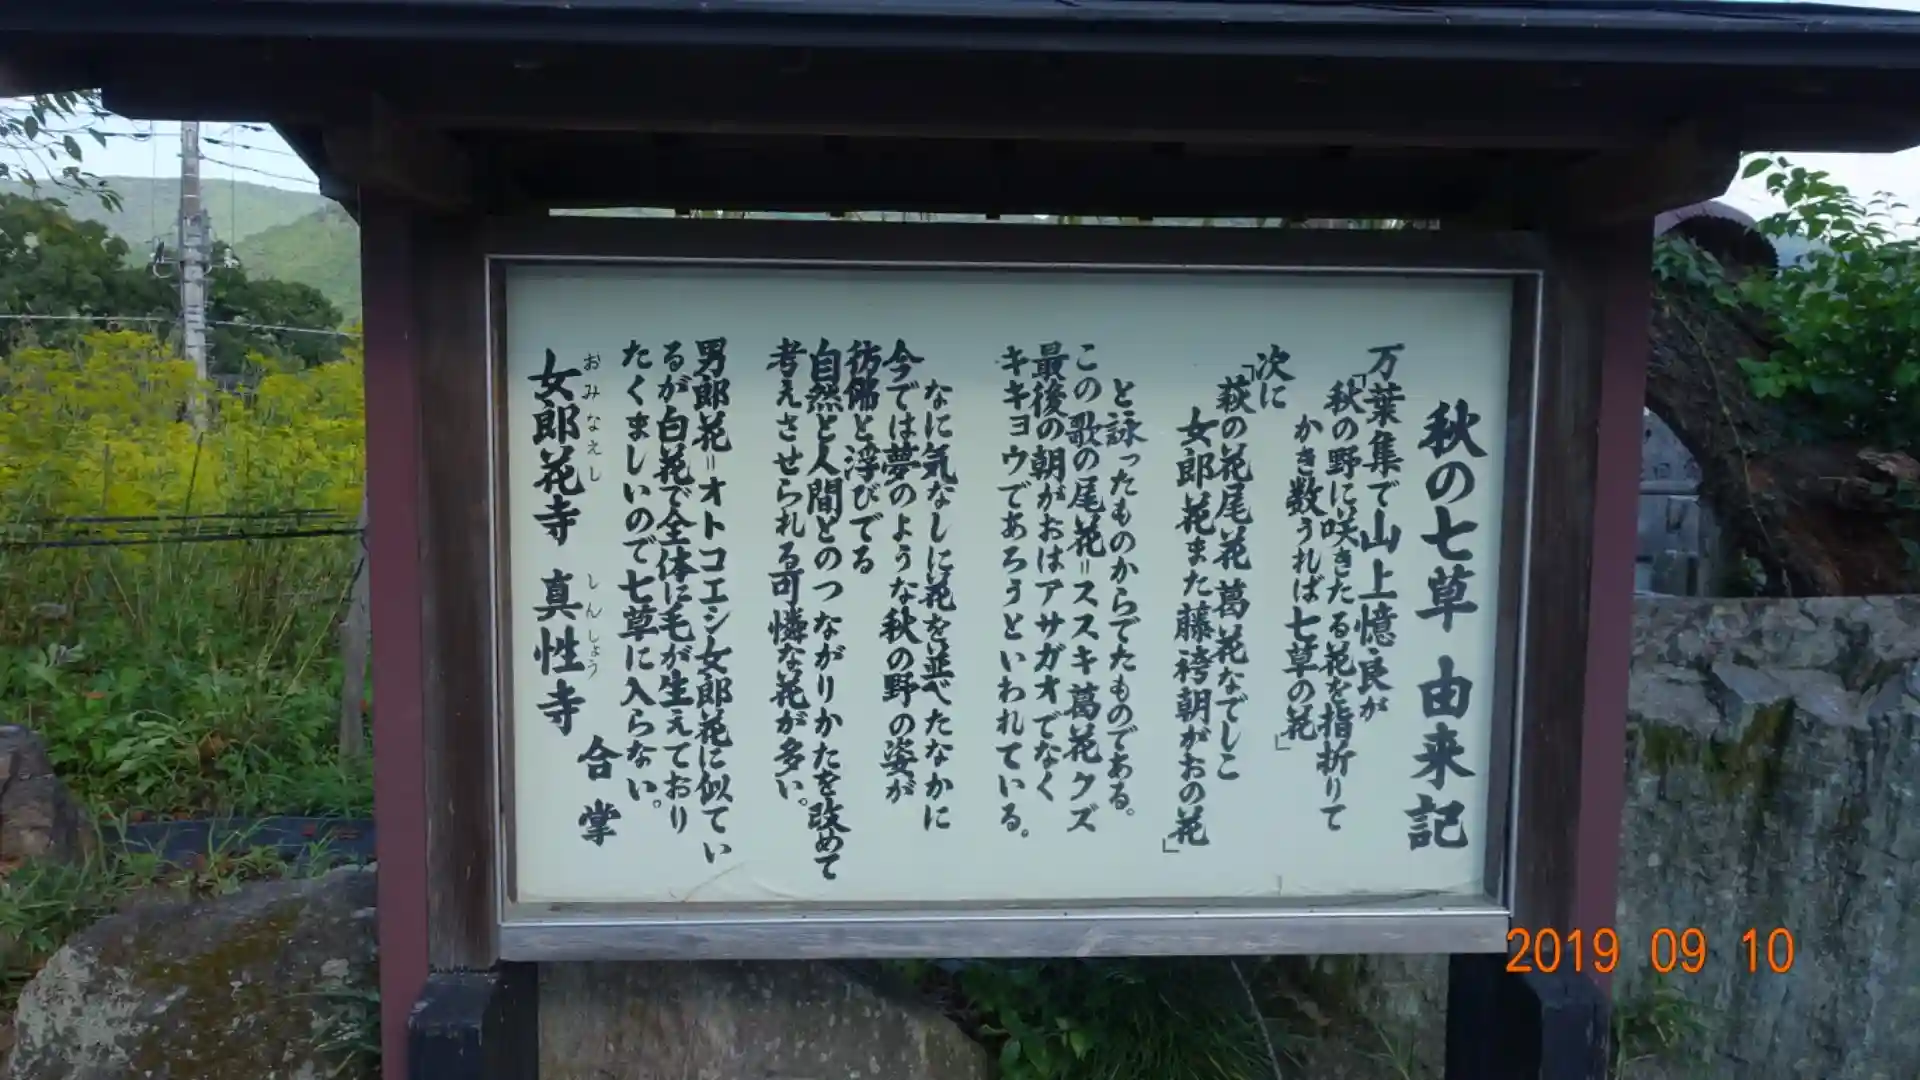 秋の七草 由来記
万葉集で山上憶良が
「秋の野に咲きたる花を指折りて
かき数うれば七草の花」
次に
「萩の花尾花 葛花なでしこ
女郎花また藤袴朝がおの花」
と詠ったものからでたものである。
この歌の尾花=ススキ葛花クズ
最後の朝がおはアサガオでなく
キキョウであろうといわれている。
なに気なしに花を並べたなかに
今では夢のような秋の野の姿が
彷彿と浮びでる
自然と人間とのつながりかたを改めて
考えさせられる可憐な花が多い。
男郎花=オトコエシ女郎花に似てい
るが白花で全体に毛が生えており
たくましいので七草に入らない。
おみなえし しんしょう
女郎花寺 真性寺
合掌
2019 09 10